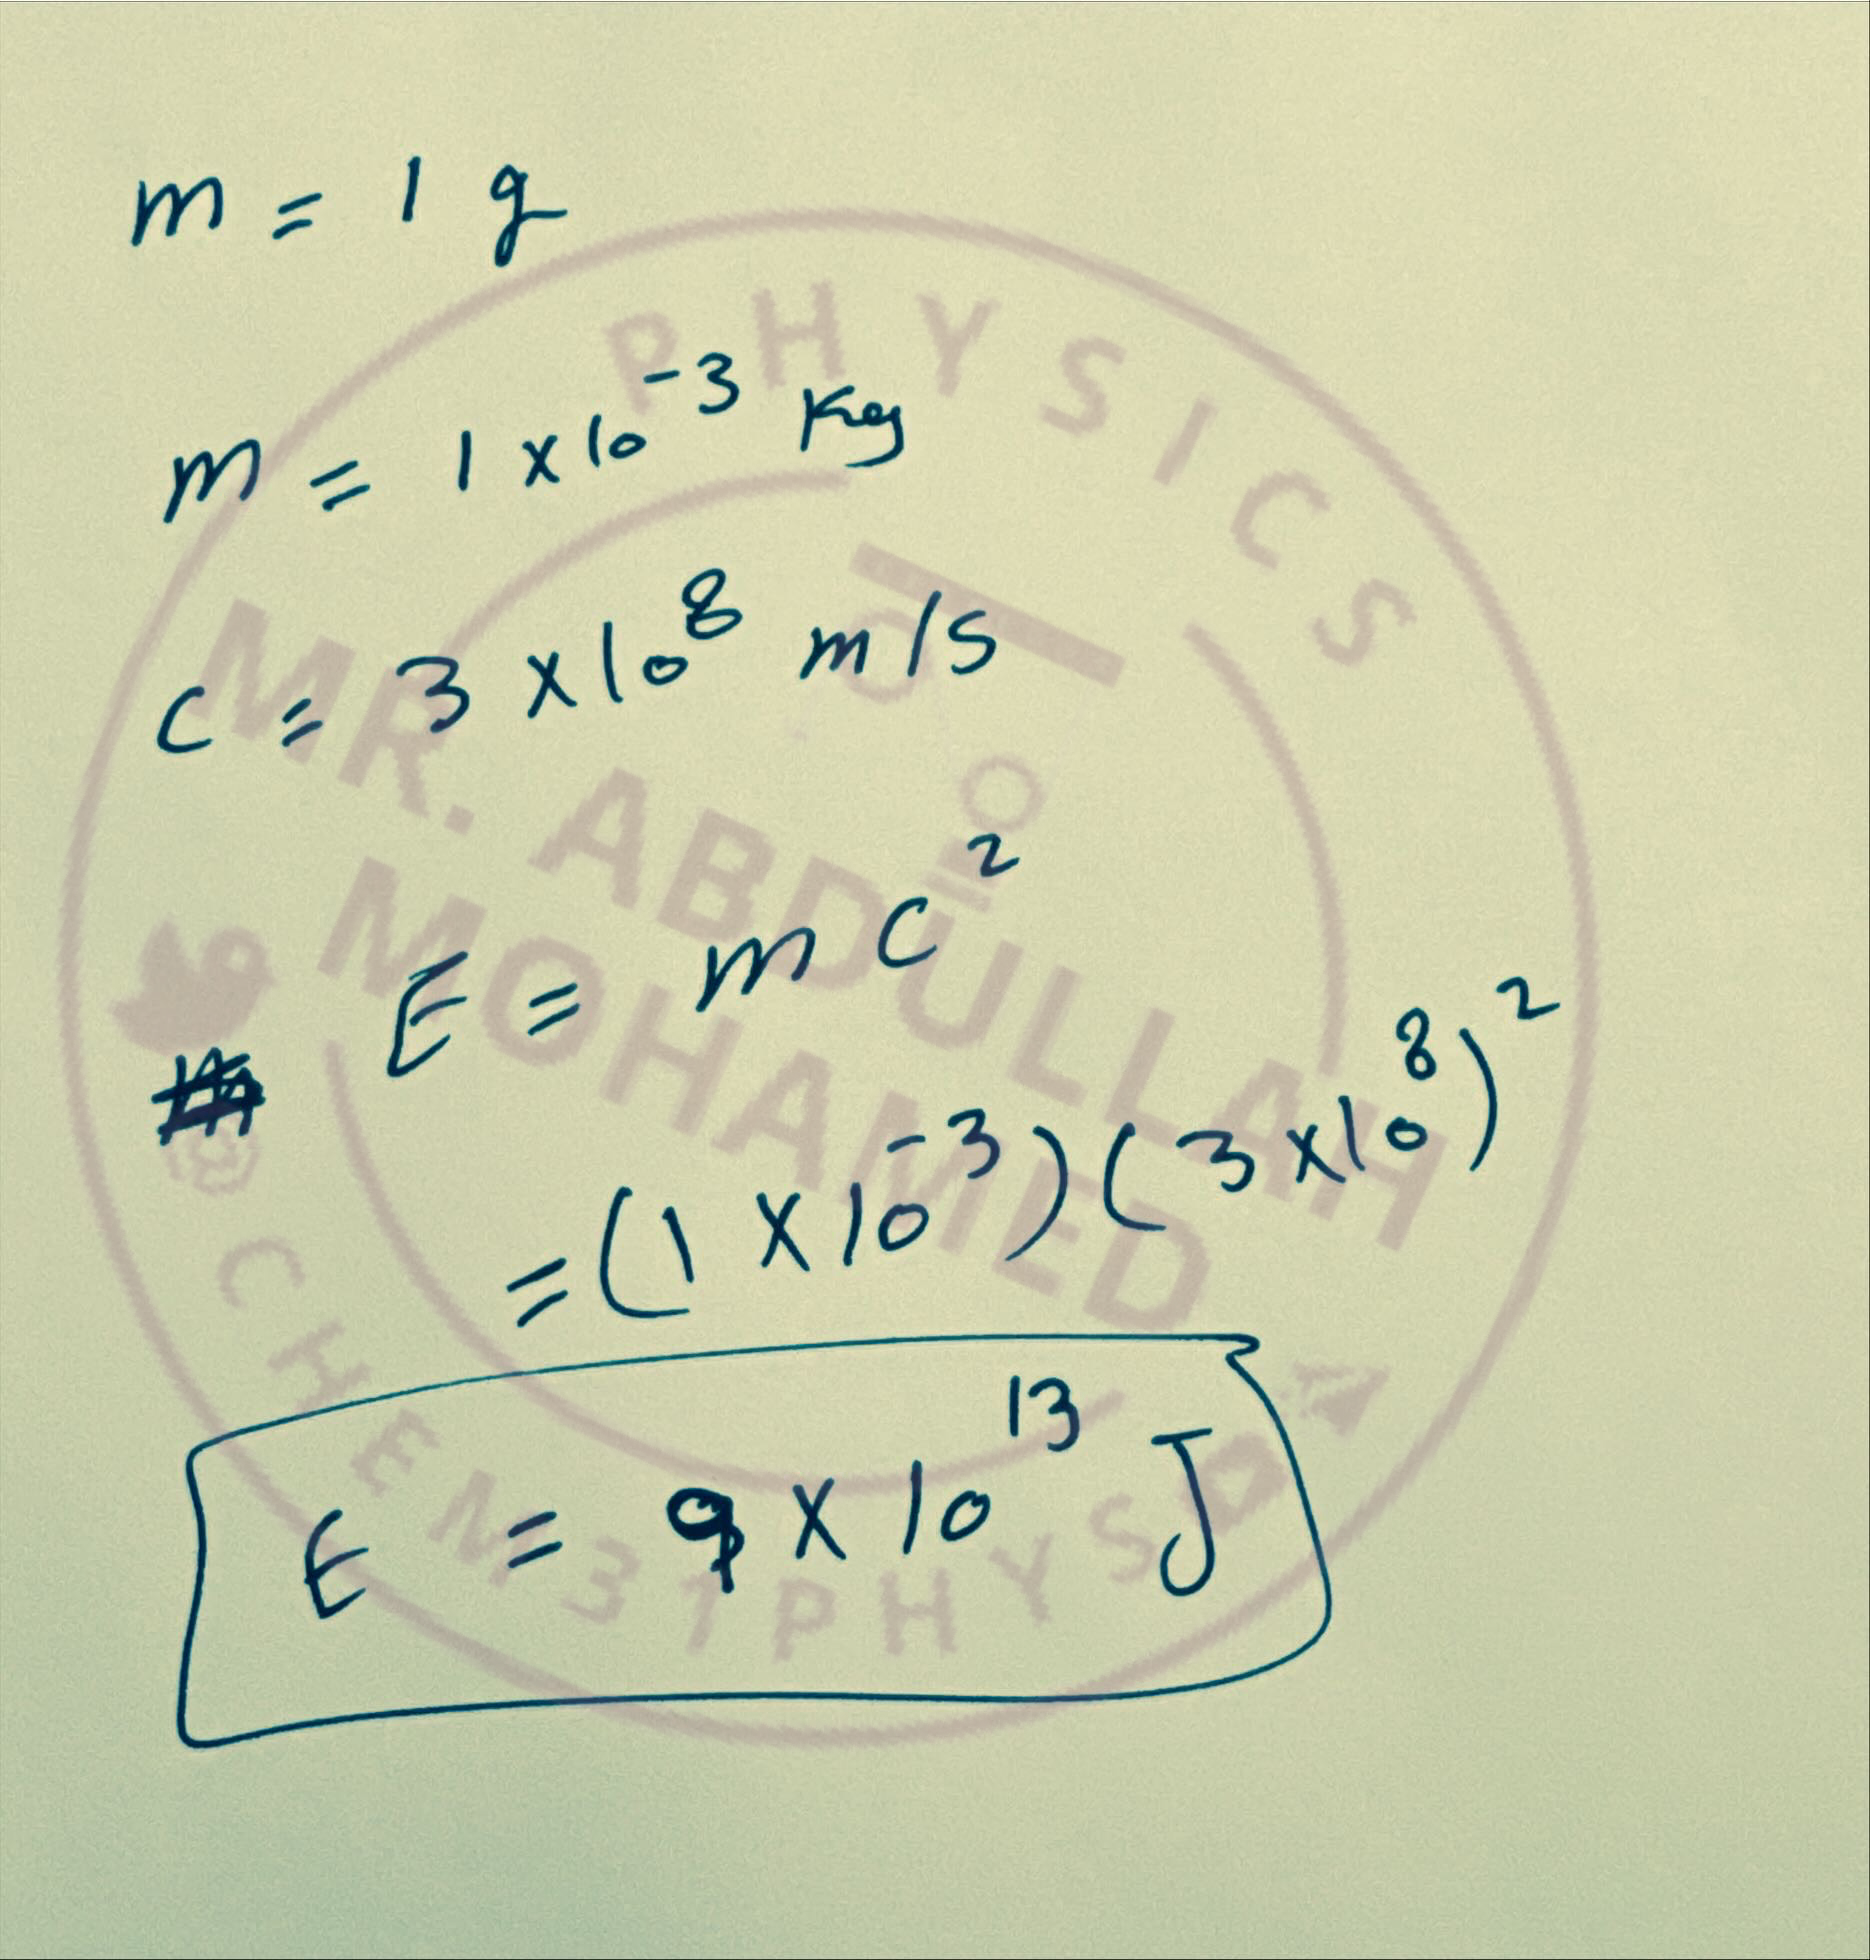 m = 1 g
m = 1 x 10⁻³ Kg
c = 3 x 10⁸ m/s
E = m c²
= (1 x 10⁻³) (3 x 10⁸)²
E = 9 x 10¹³ J
PHYSICS
MR. ABDULLAH
MOHAMED
CHEM31PHYS